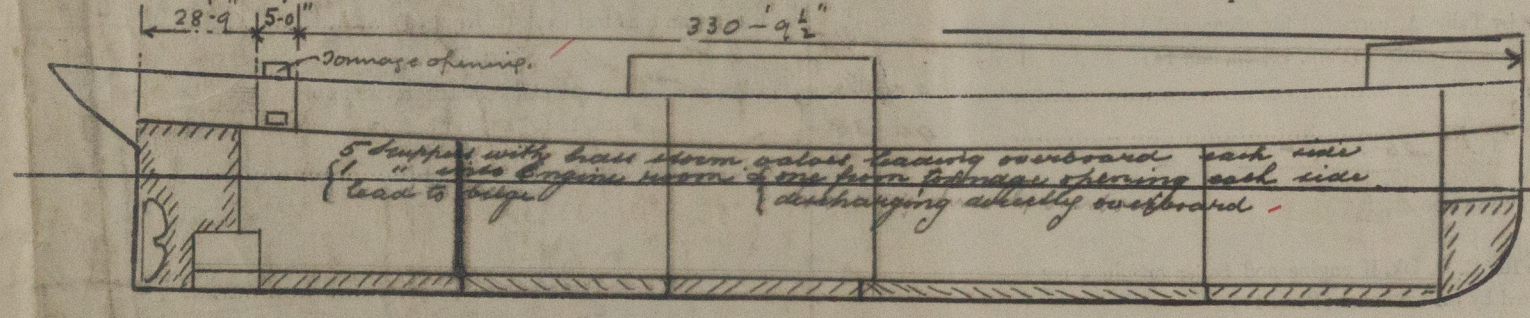 28'-9" 5-0" 330-'9½"
Tonnage opening.
5 Scuppers with brass storm valves leading overboard each side
{ 1 " into Engine room & one from tonnage opening each side.
{ lead to bilge { discharging directly overboard